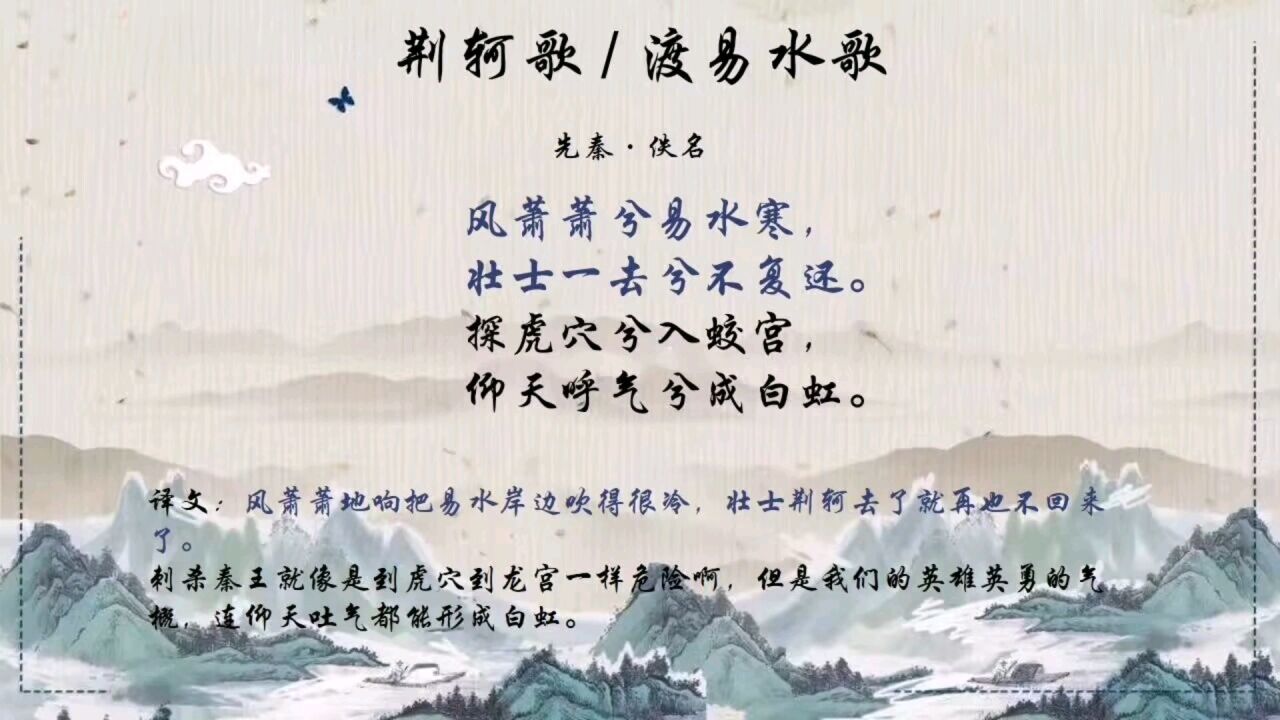 荆轲歌/渡易水歌
先秦·佚名
风萧萧兮易水寒，
壮士一去兮不复还。
探虎穴兮入蛟宫，
仰天呼气兮成白虹。
译文：风萧萧地响把易水岸边吹得很冷，壮士荆轲去了就再也不回来
了。
刺杀秦王就像是到虎穴到龙宫一样危险啊，但是我们的英雄英勇的气
概，连仰天吐气都能形成白虹。